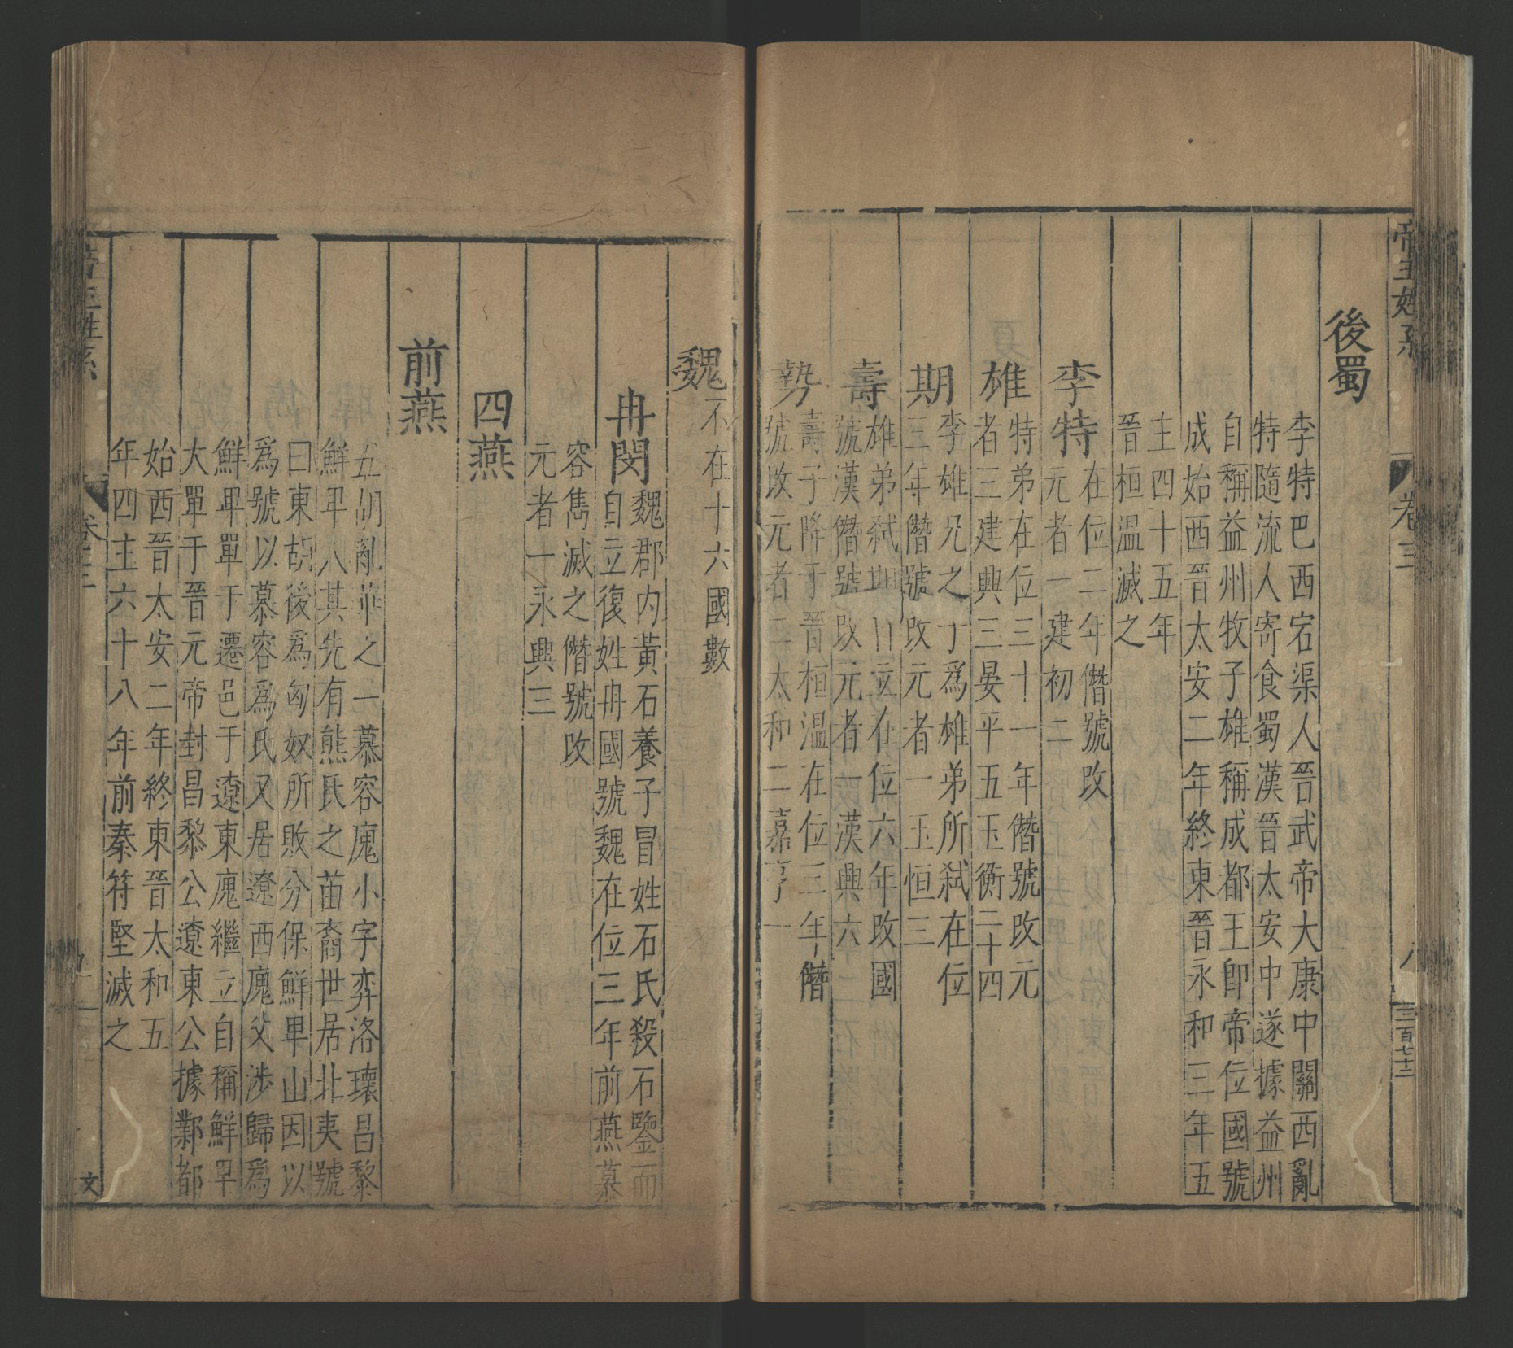 帝王姓系 卷三 八 三百七十二
後蜀
李特巴西宕渠人晉武帝大康中關西亂
特隨流人寄食蜀漢晉太安中遂據益州
自稱益州牧子雄稱成都王卽帝位國號
成始西晉太安二年終東晉永和三年五
主四十五年
晉桓溫滅之
李特
在位二年僭號改
元者一建初二
雄
特弟在位三十一年僭號改元
者三建興三晏平五玉衡二十四
期
李雄兄之丁爲雄弟所弑在位
三年僭號改元者一玉恒三
壽
雄弟弑期自立在位六年改國
號漢僭號改元者一漢興六
勢
壽子降于晉桓溫在位三年僭
號改元者二太和二嘉亨一
魏
不在十六國數
冉閔
魏郡內黃石養子冒姓石氏殺石鑒而
自立復姓冉國號魏在位三年前燕慕
容雋滅之僭號改
元者一永興三
四燕
前燕
五胡亂華之一慕容廆小字弈洛瓌昌黎
鮮卑人其先有熊氏之苗裔世居北夷號
曰東胡後爲匈奴所敗分保鮮卑山因以
爲號以慕容爲氏又居遼西廆父涉歸爲
鮮卑單于遷邑于遼東廆繼立自稱鮮卑
大單于晉元帝封昌黎公遼東公據鄴都
始西晉太安二年終東晉太和五
年四主六十八年前秦苻堅滅之
帝王姓系 卷三 九 文